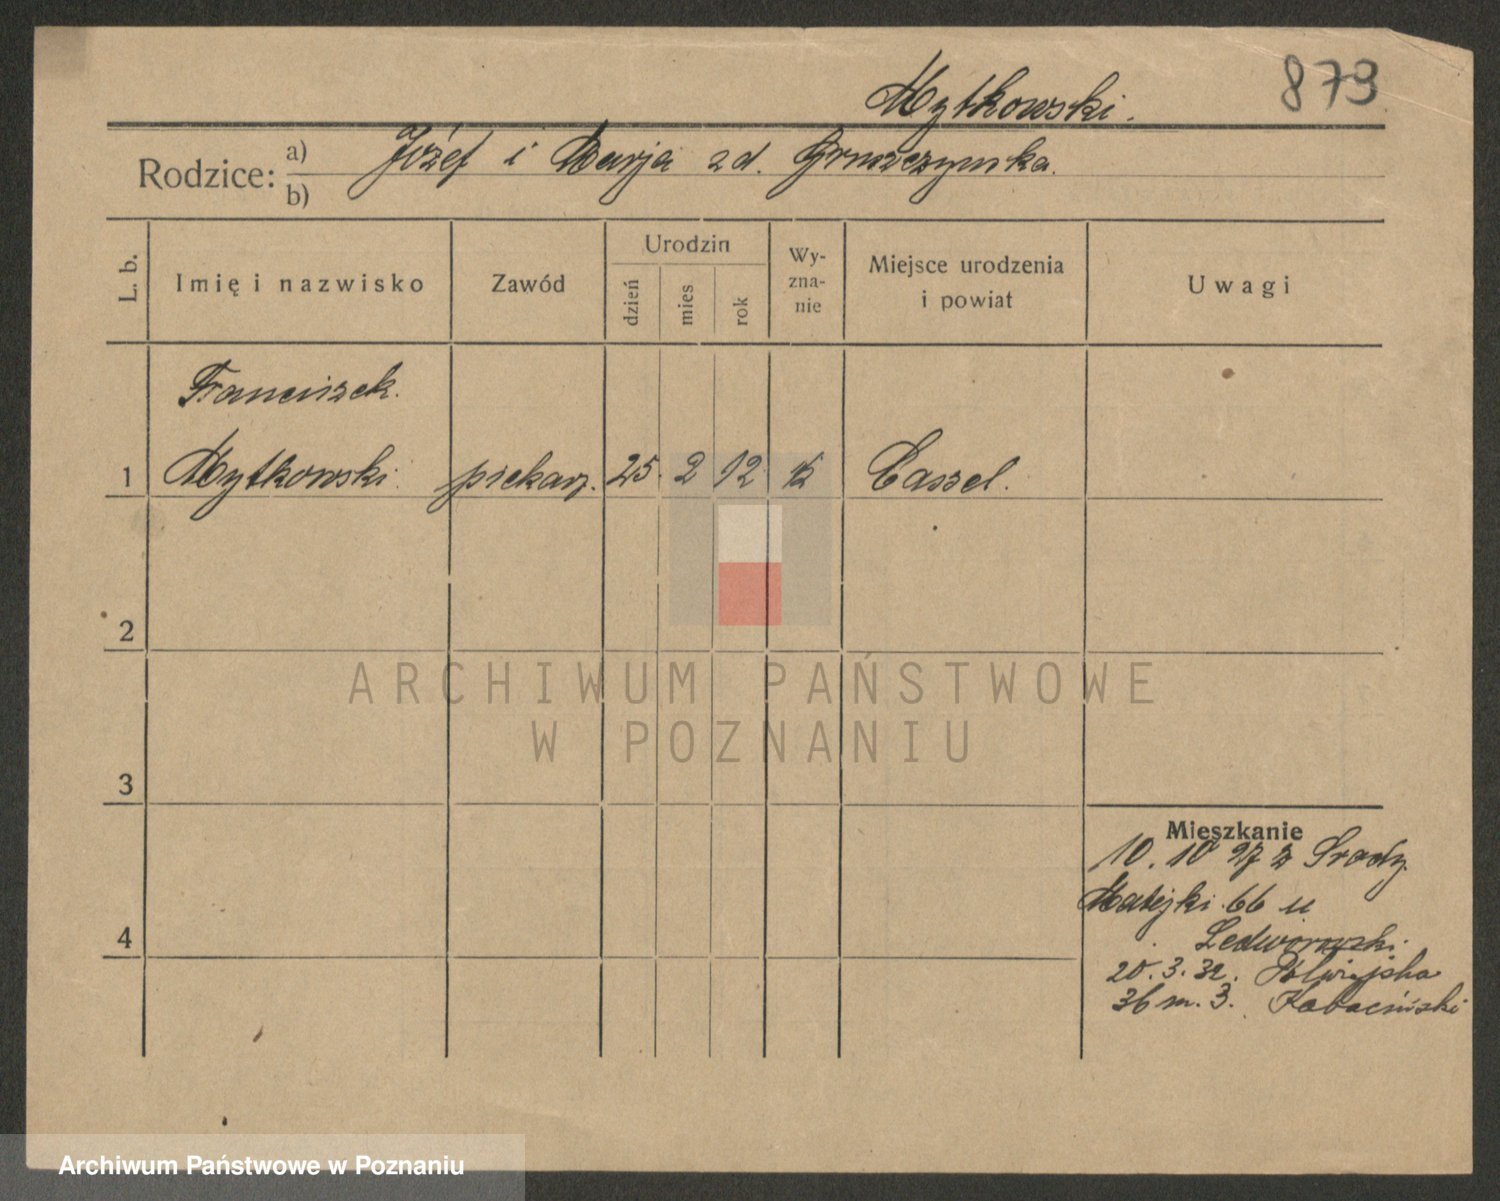 873
Mytkowski.
Rodzice: a) b) Józef i Marja zd. Gruszczynska.
L. b.
Imię i nazwisko
Zawód
Urodzin
dzień
mies
rok
Wy-
zna-
nie
Miejsce urodzenia
i powiat
Uwagi
Franciszek.
1 Mytkowski. piekarz. 25. 2 12 Cassel.
2
ARCHIWUM PAŃSTWOWE
W POZNANIU
3
Mieszkanie
10. 10 27 z Środy.
Matejki 66 u
4
20. 3. 32.
36 m. 3. Kabaciński
Archiwum Państwowe w Poznaniu